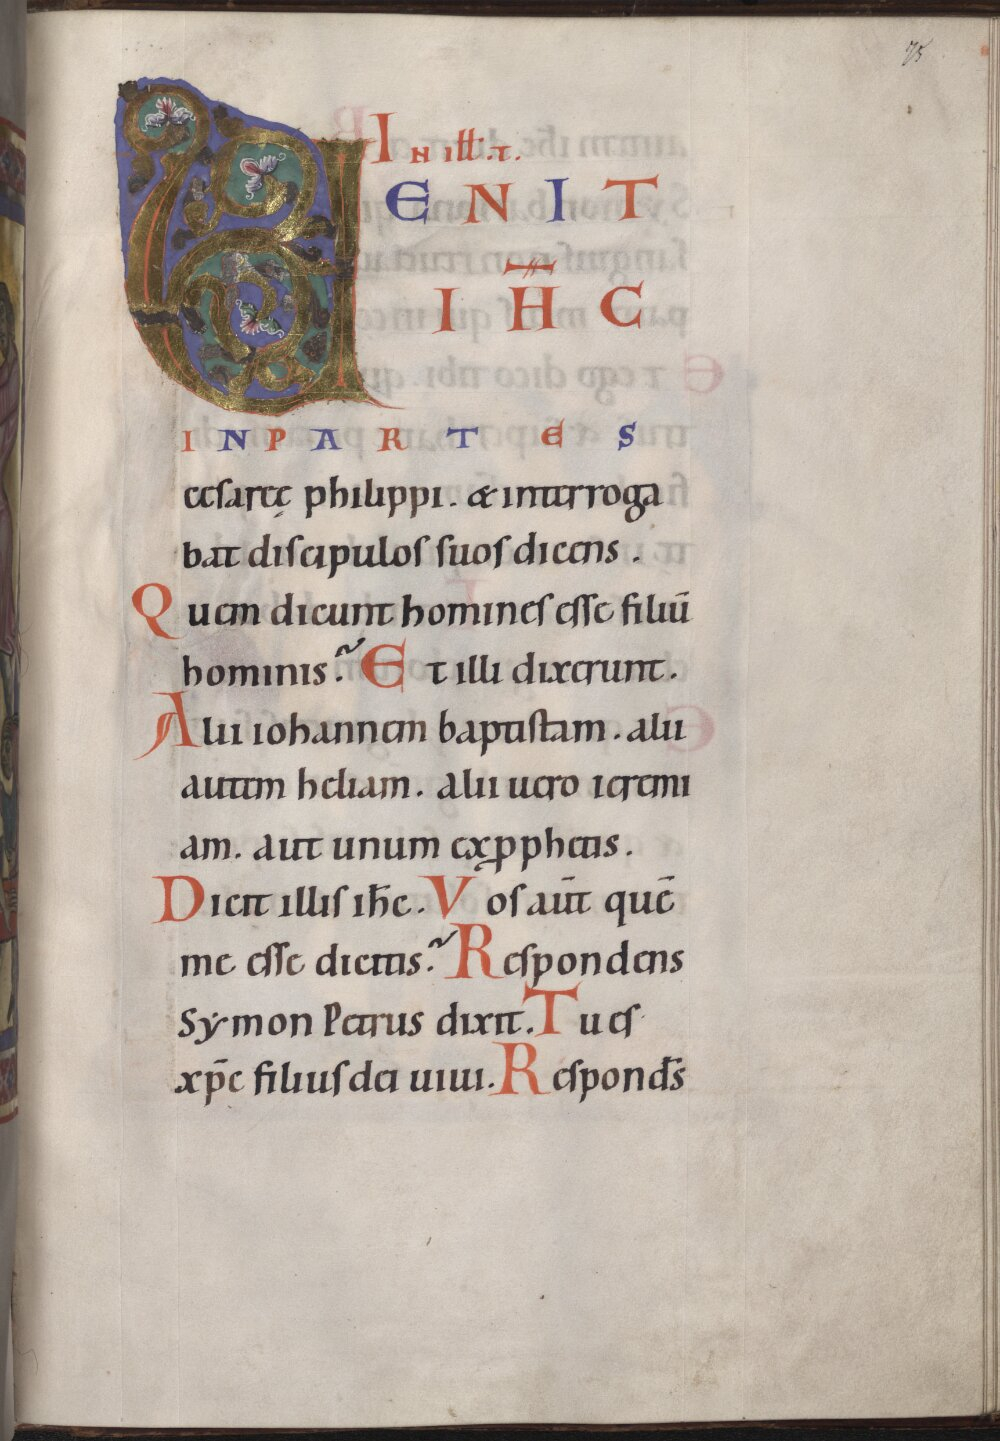 75
In ill̅. t.
VENIT
IH̅C
IN PARTES
cesareę philippi. & interroga
bat discipulos suos dicens.
Quem dicunt homines esse filiū
hominis? Et illi dixerunt.
Alii iohannem baptistam. alii
autem heliam. alii uero ieremi
am. aut unum ex ꝓphetis.
Dicit illis ih̅c. Vos aūt quē
me esse dicitis? Respondens
Symon Petrus dixit. Tu es
xp̅c filius dei uiui. Respond̅s